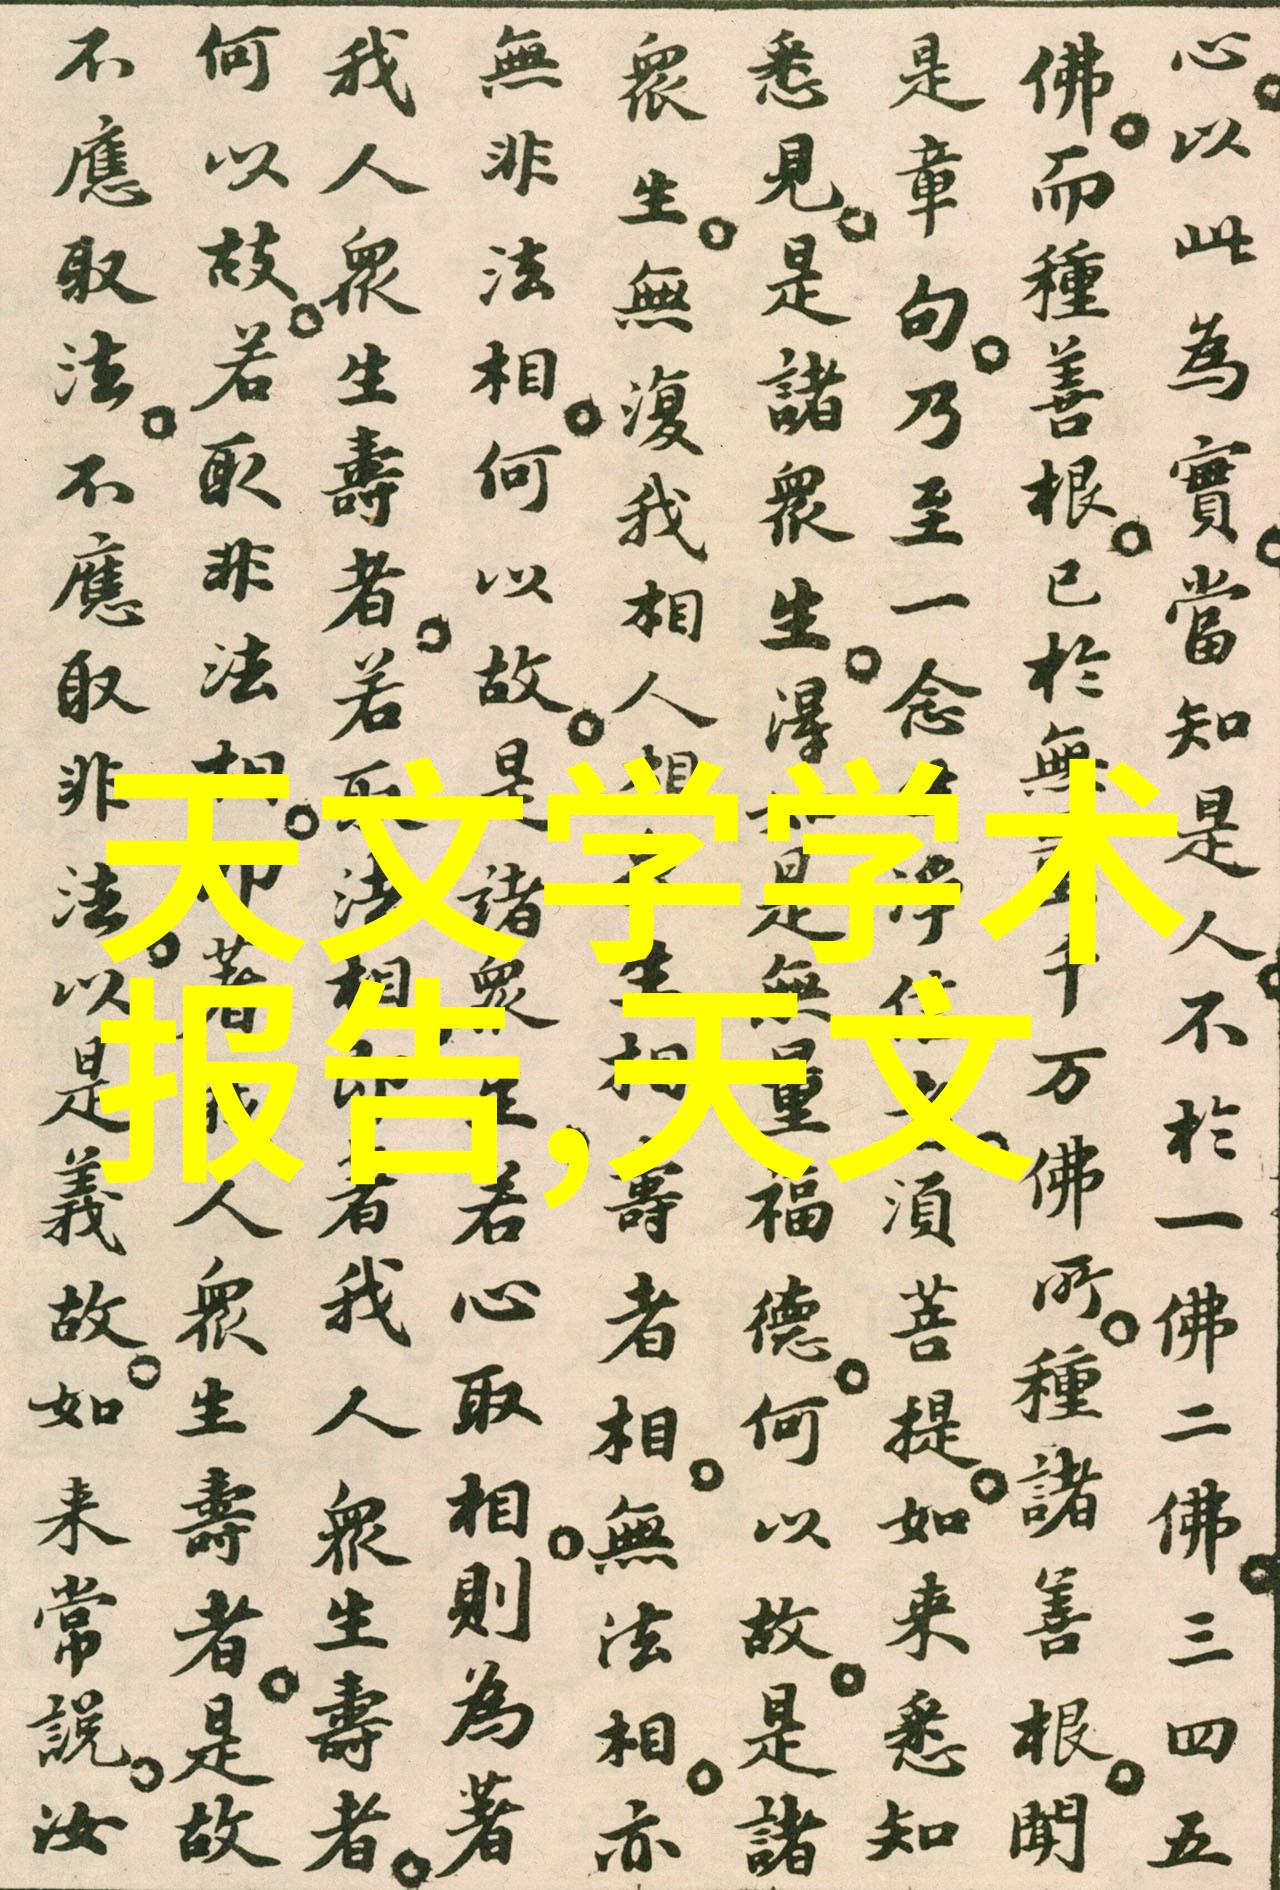 心以此為實當知是人不於一佛二佛三四五
佛而種善根已於無量千万佛所種諸善根聞
是章句乃至一念生淨信者須菩提如来悉知
悉見是諸衆生得如是無量福德何以故是諸
衆生無復我相人相衆生相壽者相無法相亦
無非法相何以故是諸衆生若心取相則為著
我人衆生壽者若取法相即著我人衆生壽者
何以故若取非法相即著我人衆生壽者是故
不應取法不應取非法以是義故如来常說汝
天文学学术
报告,天文